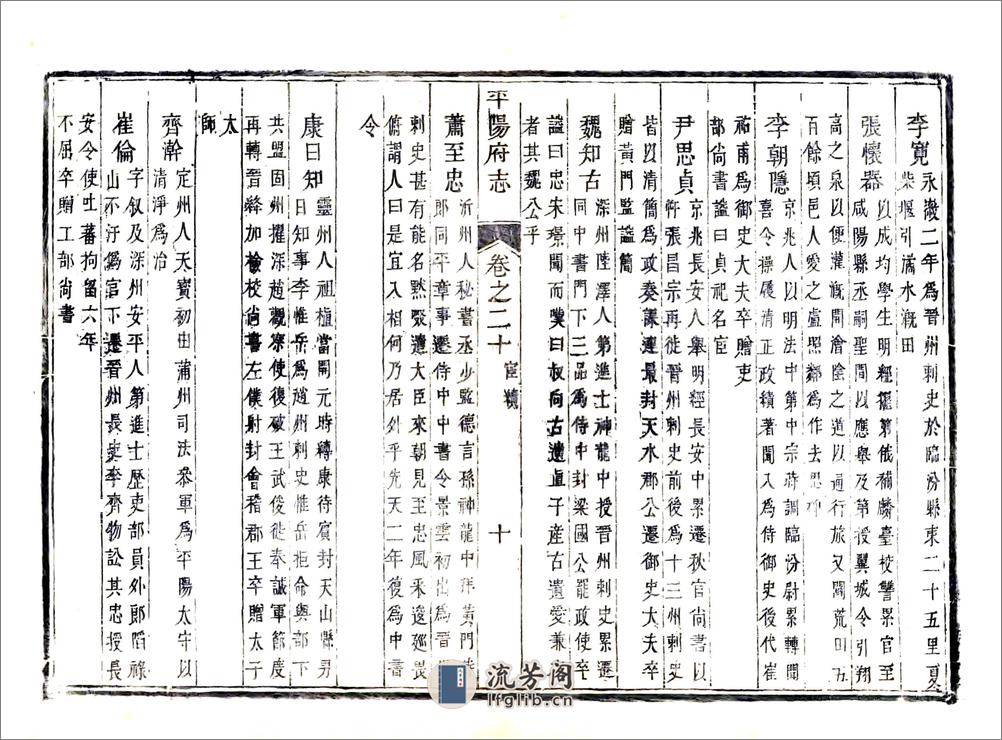 李寬永徽二年爲晉州刺史於臨汾縣東二十五里夏
柴堰引潏水溉田
張懷器以成均學生明經擢第俄補麟臺校讐累官至
咸陽縣丞嗣聖間以應舉及第授翼城令引翔
高之泉以便汲澮陰之道以通行旅又闢荒田五
百餘頃邑人愛之盧照鄰爲作去思碑
李朝隱京兆人以明法中第中宗時調臨汾尉累轉聞
喜令操履清正政績著聞入爲侍御史後代崔
祐甫爲御史大夫卒贈吏
部尚書諡曰貞祀名宦
尹思貞京兆長安人舉明經長安中累遷秋官尚書以
忤張昌宗再徙晉州刺史前後爲十三州刺史
皆以清簡爲政奏課連最封天水郡公遷御史大夫卒
贈黃門監諡簡
魏知古深州陸澤人第進士神龍中授晉州刺史累遷
同中書門下三品爲侍中封梁國公罷政使卒
諡忠宋璟聞而嘆曰叔向古遺直子産古遺愛兼
者其魏公乎
平陽府志 卷之二十 宦績 十
蕭至忠沂州人秘書丞少監德言孫神龍中拜黃門侍
郎同平章事遷侍中中書令景雲初出爲晉州
刺史甚有能名默啜遣大臣來朝見至忠風采逡廵畏
俯謂人曰是宜入相何乃居外乎先天二年復爲中書
令
康日知靈州人祖植當開元時縛康待賓封天山縣男
日知事李惟岳爲趙州刺史惟岳拒命與部下
共盟固州擢深趙觀察使後破王武俊徙奉誠軍節度
再轉晉絳加檢校尚書左僕射封會稽郡王卒贈太子
太
師
齊澣定州人天寶初由蒲州司法參軍爲平陽太守以
清淨爲治
崔倫字叙及深州安平人第進士歷吏部員外郎䧟祿
山不汙僞官下遷晉州長史李齊物訟其忠授長
安令使吐蕃拘留六年
不屈卒贈工部尚書
流芳阁
lfglib.cn